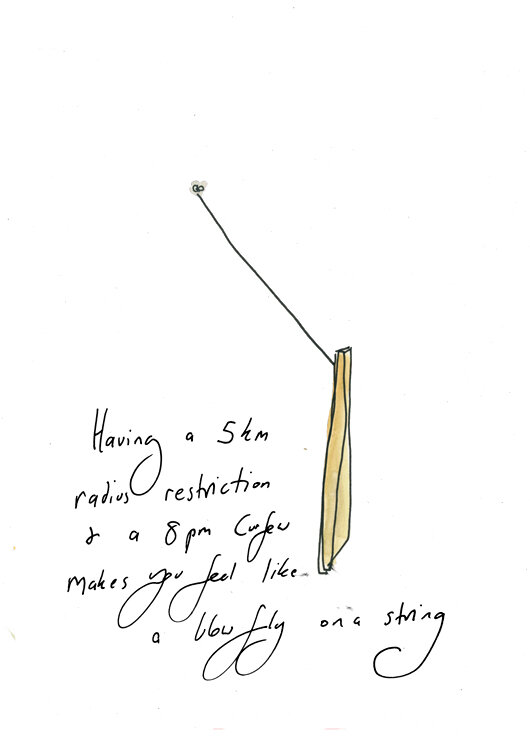 Having a 5km
radius restriction
& a 8pm Curfew
makes you feel like
a blow fly on a string